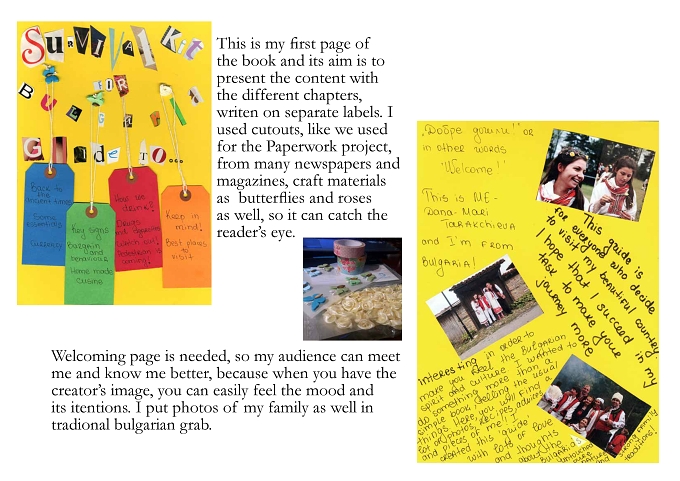 Survival Kit
FOR
BulgaRiA
Guide to...
Back to
the
Ancient times
Currency
Key signs
Bargain
and
behaviour
Home made
cuisine
How we
drink?
coming!
Keep in
mind!
Best places
to
visit
This is my first page of
the book and its aim is to
present the content with
the different chapters,
writen on separate labels. I
used cutouts, like we used
for the Paperwork project,
from many newspapers and
magazines, craft materials
as butterflies and roses
as well, so it can catch the
reader's eye.
Welcoming page is needed, so my audience can meet
me and know me better, because when you have the
creator's image, you can easily feel the mood and
its itentions. I put photos of my family as well in
tradional bulgarian grab.
„Добре дошли!" or
in other words
"Welcome!"
This is ME-
Dana-Mari
Tarakchieva
and I'm from
Bulgaria!
This guide is
for everyone who decide
to visit my beautiful country
I hope that I succeed in my
task to make your
journey more
interesting in order to
make you feel the Bulgarian
spirit and culture I wanted to
do something more than a
simple book, telling the usual
things. Here you will find a
lot of photos, recipes, advices
and pieces of me! I
created this guide
with lots of love
and thoughts
about the
Bulgarias
untouched
pure
nature
strong family
traditions!